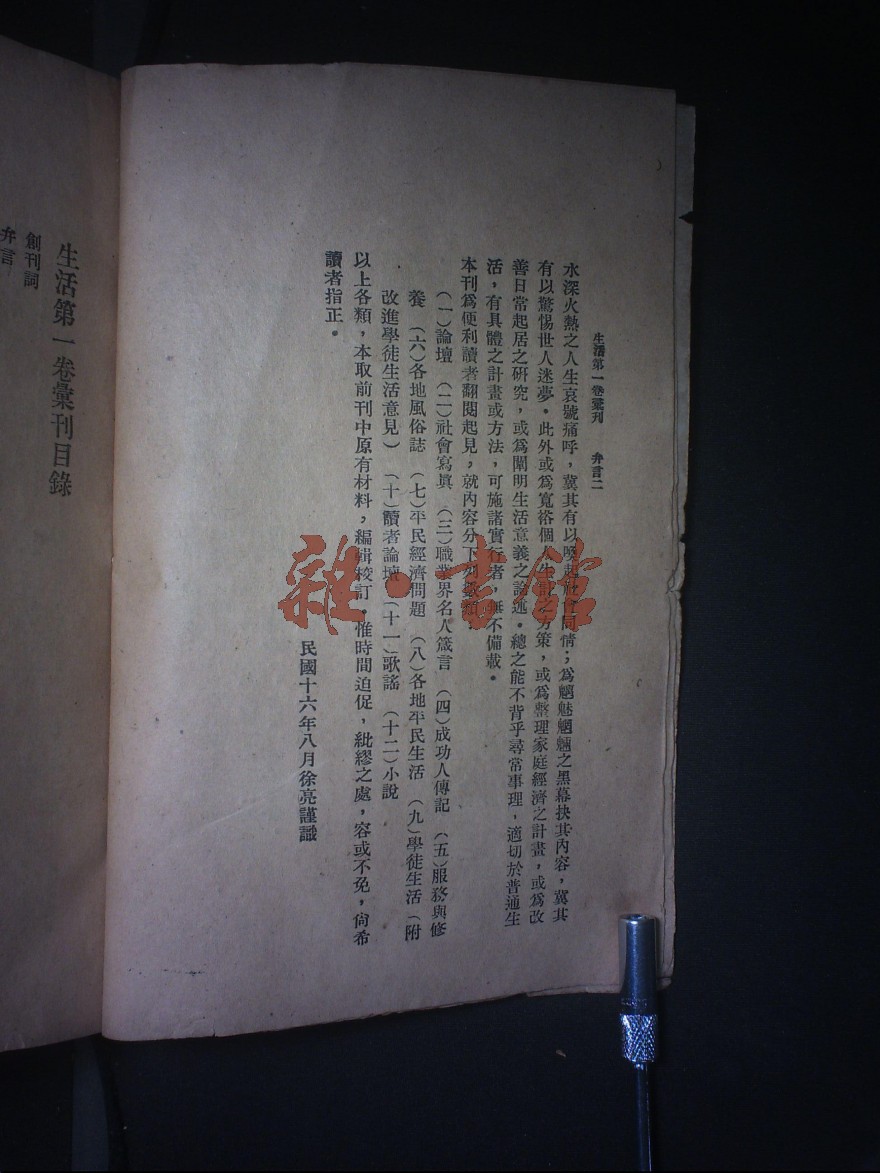 生活第一卷彙刊 弁言二
水深火熱之人生哀號痛呼，冀其有以喚起社會同情；爲魑魅魍魎之黑幕抉其內容，冀其
有以驚惕世人迷夢。此外或爲寬裕個人生計之方策，或爲整理家庭經濟之計畫，或爲改
善日常起居之研究，或爲闡明生活意義之論述。總之能不背乎尋常事理，適切於普通生
活，有具體之計畫或方法，可施諸實行者，無不備載。
本刊爲便利讀者翻閱起見，就內容分下列數類：
（一）論壇 （二）社會寫眞 （三）職業界名人箴言 （四）成功人傳記 （五）服務與修
養 （六）各地風俗誌 （七）平民經濟問題 （八）各地平民生活 （九）學徒生活（附
改進學徒生活意見） （十）讀者論壇 （十一）歌謠 （十二）小說
以上各類，本取前刊中原有材料，編輯校訂。惟時間迫促，紕繆之處，容或不免，尙希
讀者指正。
民國十六年八月徐亮謹識
生活第一卷彙刊目錄
創刊詞
弁言
雜·書館